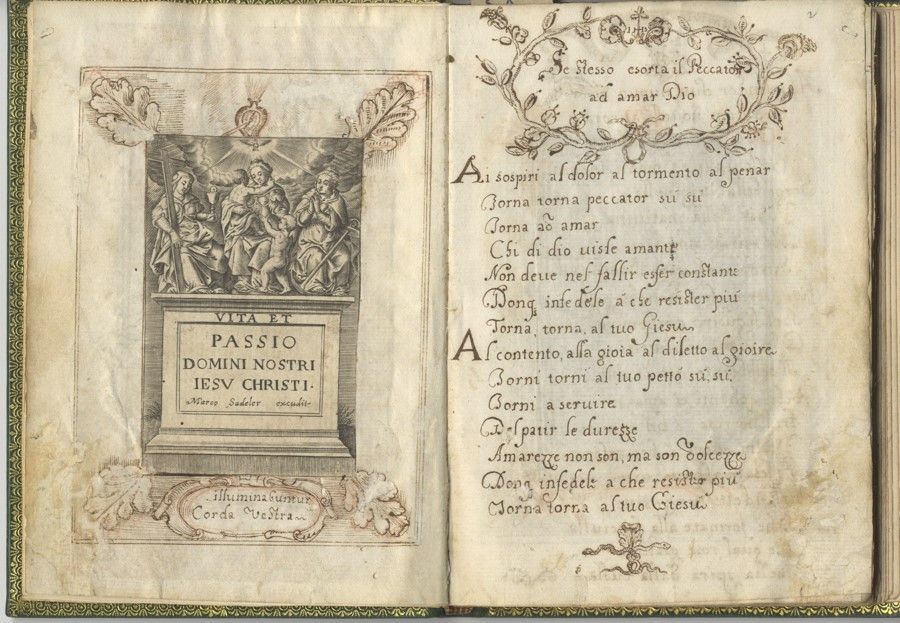 VITA ET
PASSIO
DOMINI NOSTRI
IESV CHRISTI.
Marco Sadeler excudit
illuminabuntur
Corda Vestra
2
Se stesso esorta il Peccator
ad amar Dio
Ai sospiri al dolor al tormento al penar
Torna torna peccator sù sù
Torna ad amar
Chi di dio uisse amante
Non deue nel fallir esser constante
Donq infedele à che resister più
Torna, torna, al tuo Giesu
Al contento, alla gioia al diletto al gioire
Torni torni al tuo petto sù, sù,
Torni a seruire
Del patir le durezze
Amarezze non son, ma son dolcezze
Donq infedele a che resister più
Torna torna al tuo Giesu